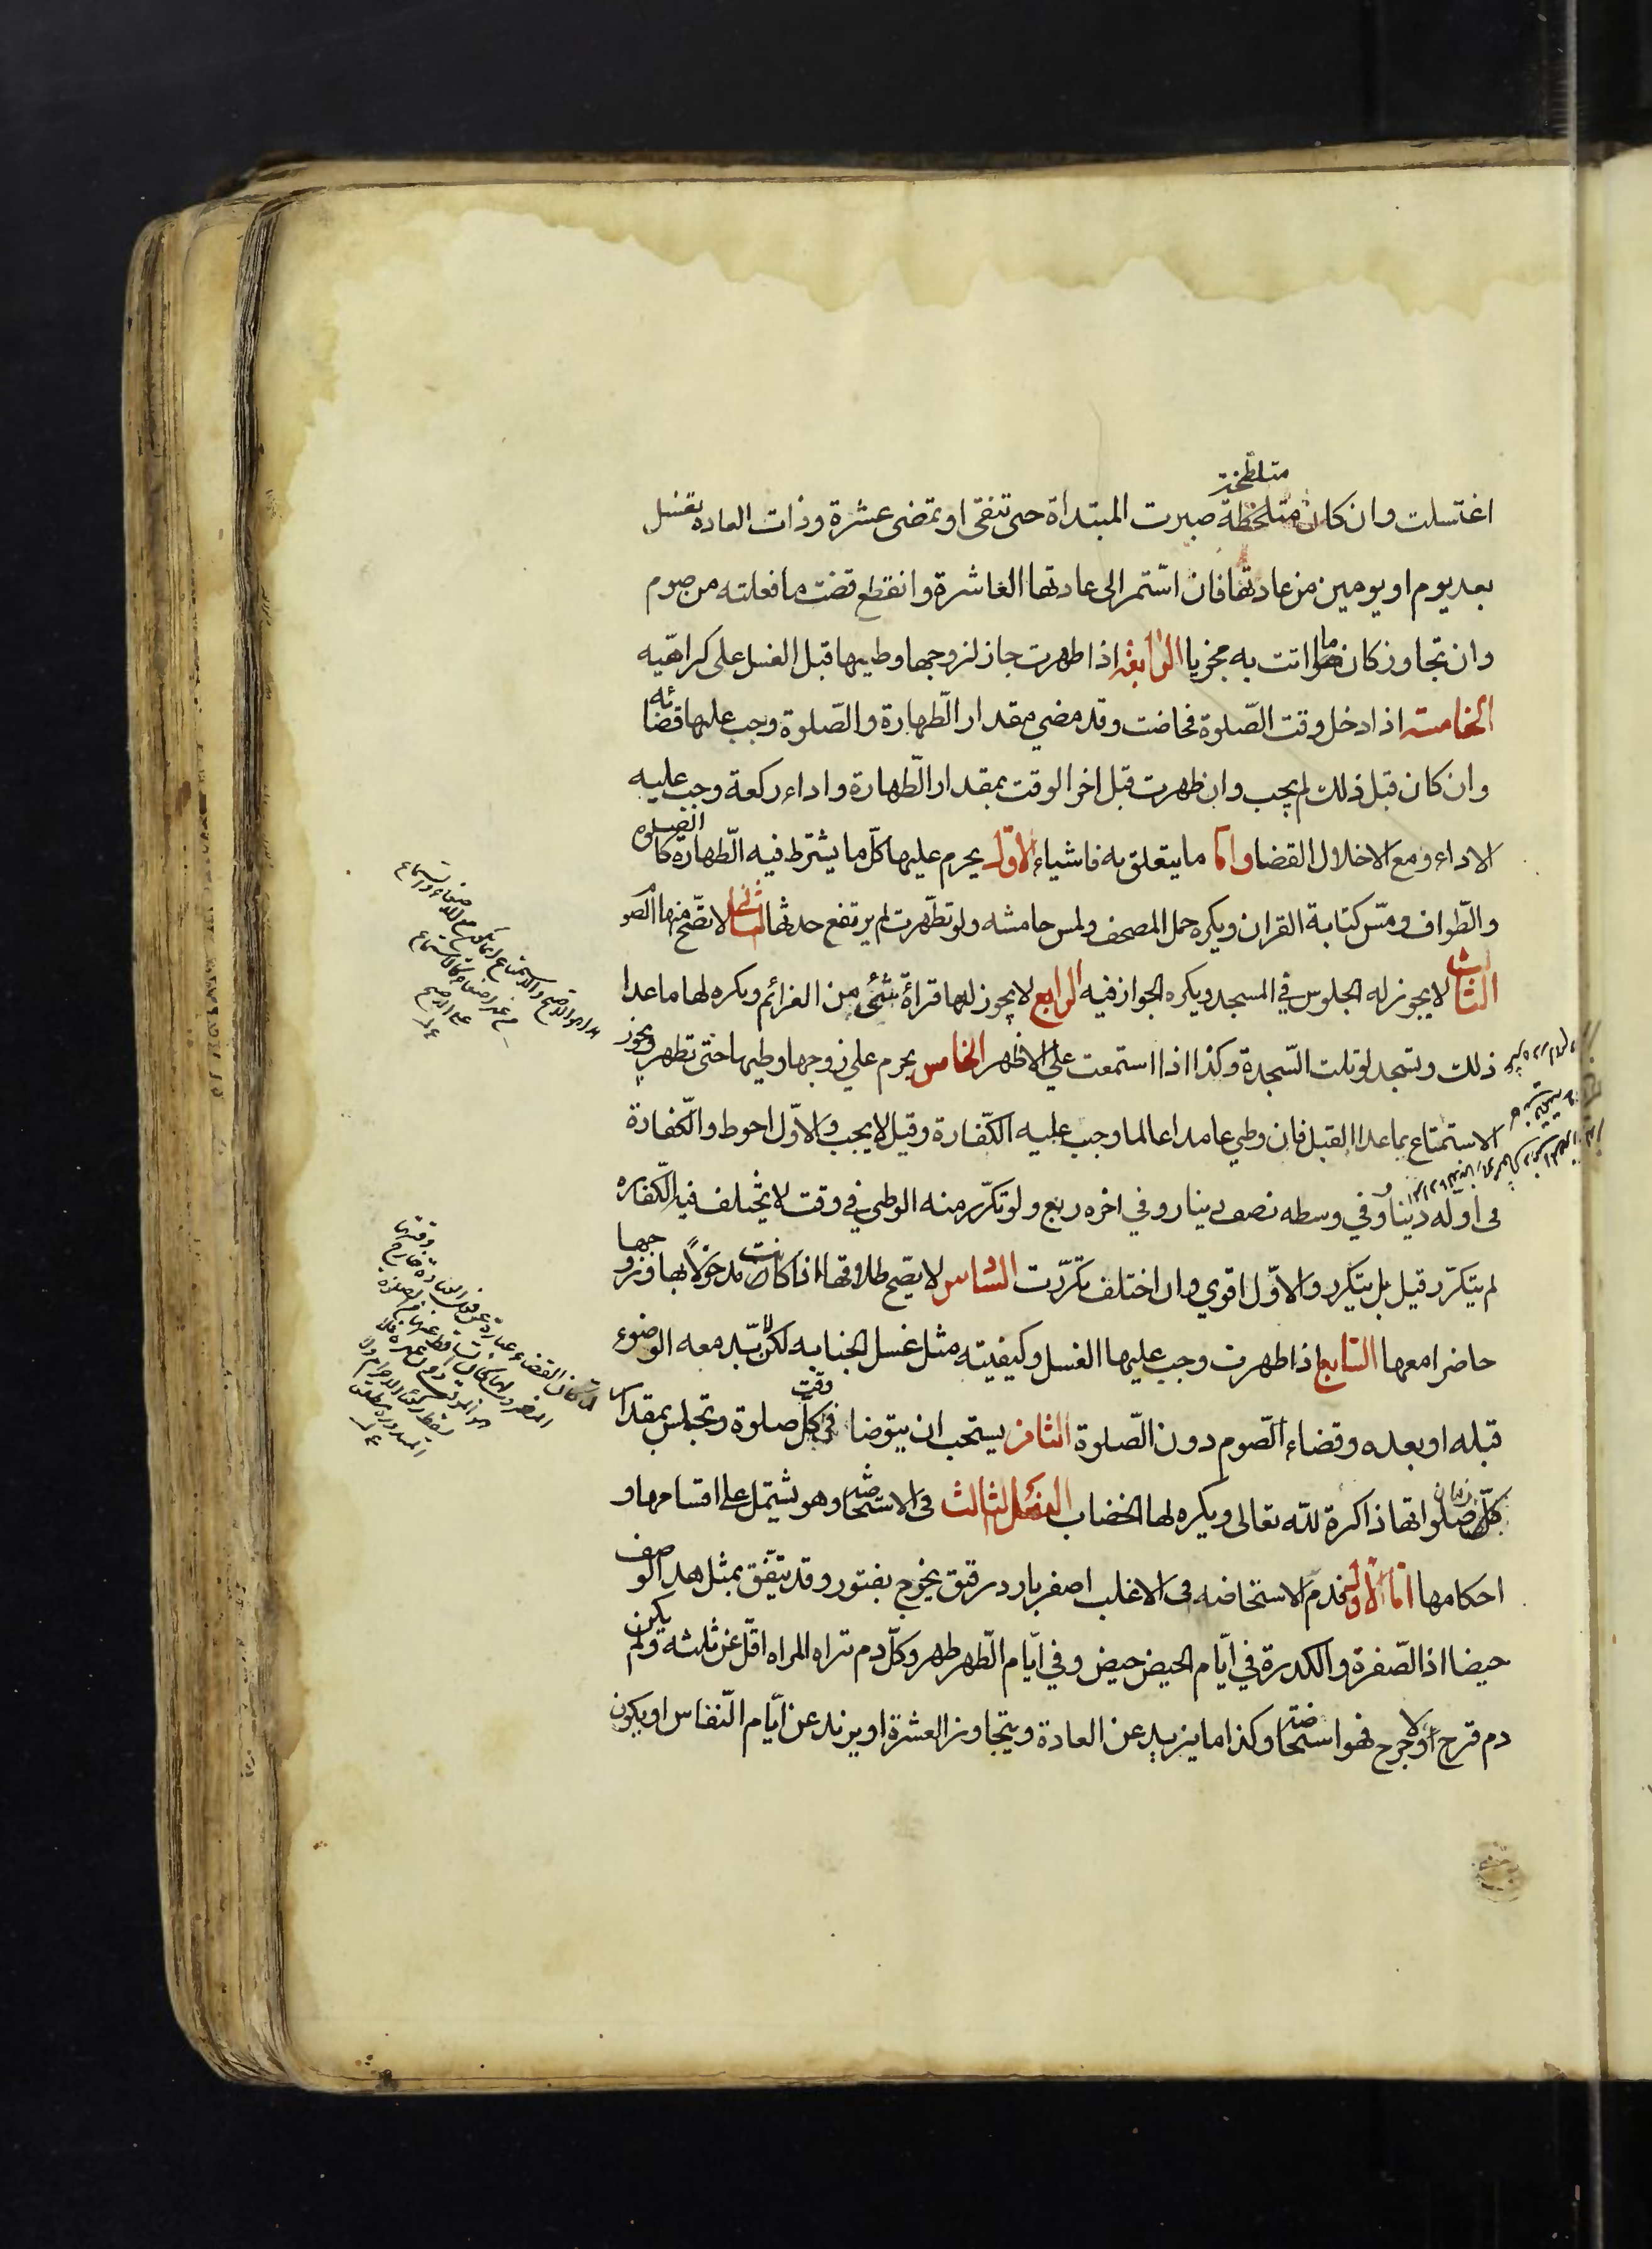 متلطخة
اغتسلت وان كان متلطخة صبرت المبتدأة حتى تنقى او تمضى عشرة وذات العادة تغتسل
بعد يوم او يومين من عادتها فان استمر الى عادتها العاشرة وانقطع قضت ما فعلته من صوم
وان تجاوز كان ما اتت به مجزيا الرابعة اذا طهرت جاز لزوجها وطيها قبل الغسل على كراهيه
الخامسة اذا دخل وقت الصلوة فحاضت وقد مضي مقدار الطهارة والصلوة وجب عليها قضائه
وان كان قبل ذلك لم يجب وان طهرت قبل اخر الوقت بمقدار الطهارة واداء ركعة وجب عليه
الاداء ومع الاخلال القضا واما ما يتعلق به فاشياء الاول يحرم عليها كل ما يشترط فيه الطهارة كالصلوة
والطواف ومس كتابة القران ويكره حمل المصحف ولمس هامشه ولو تطهرت لم يرتفع حدثها الثاني لا تصح منها الصو
الثالث لا يجوز له الجلوس في المسجد ويكره الجواز فيه الرابع لا يجوز لها قراة شئ من العزائم ويكره لها ما عدا
ذلك وتسجد لو تلت السجدة وكذا اذا استمعت علي الاظهر الخامس يحرم علي زوجها وطيها حتى تطهر ويجوز
الاستمتاع بما عدا القبل فان وطي عامدا عالما وجب عليه الكفارة وقيل لا يجب والاول احوط والكفارة
فى اوله دينار وفي وسطه نصف دينار وفي اخره ربع ولو تكرر منه الوطي في وقت لا يختلف فيه الكفاره
لم يتكرر وقيل بل يتكرر والاول اقوي وان اختلف تكررت السادس لا يصح طلاقها اذا كانت مدخولا بها وزوجها
حاضرا معها السابع اذا طهرت وجب عليها الغسل وكيفيته مثل غسل الجنابه لكن لا بد معه الوضوء
قبله او بعده وقضاء الصوم دون الصلوة الثامن يستحب ان يتوضا في وقت كل صلوة وتجلس بمقدار
زمان صلواتها ذاكرة لله تعالى ويكره لها الخضاب الفصل الثالث فى الاستحاضه وهو يشتمل على اقسامها و
احكامها اما الاول فدم الاستحاضه فى الاغلب اصفر بارد رقيق يخرج بفتور وقد يتفق بمثل هذا الوصف
حيضا اذ الصفرة والكدرة في ايام الحيض حيض وفي ايام الطهر طهر وكل دم تراه المراه اقل عن ثلثه ولم يكن
دم قرح ولا جرح فهو استحاضة وكذا ما يزيد عن العادة ويتجاوز العشرة او يزيد عن ايام النفاس او يكون